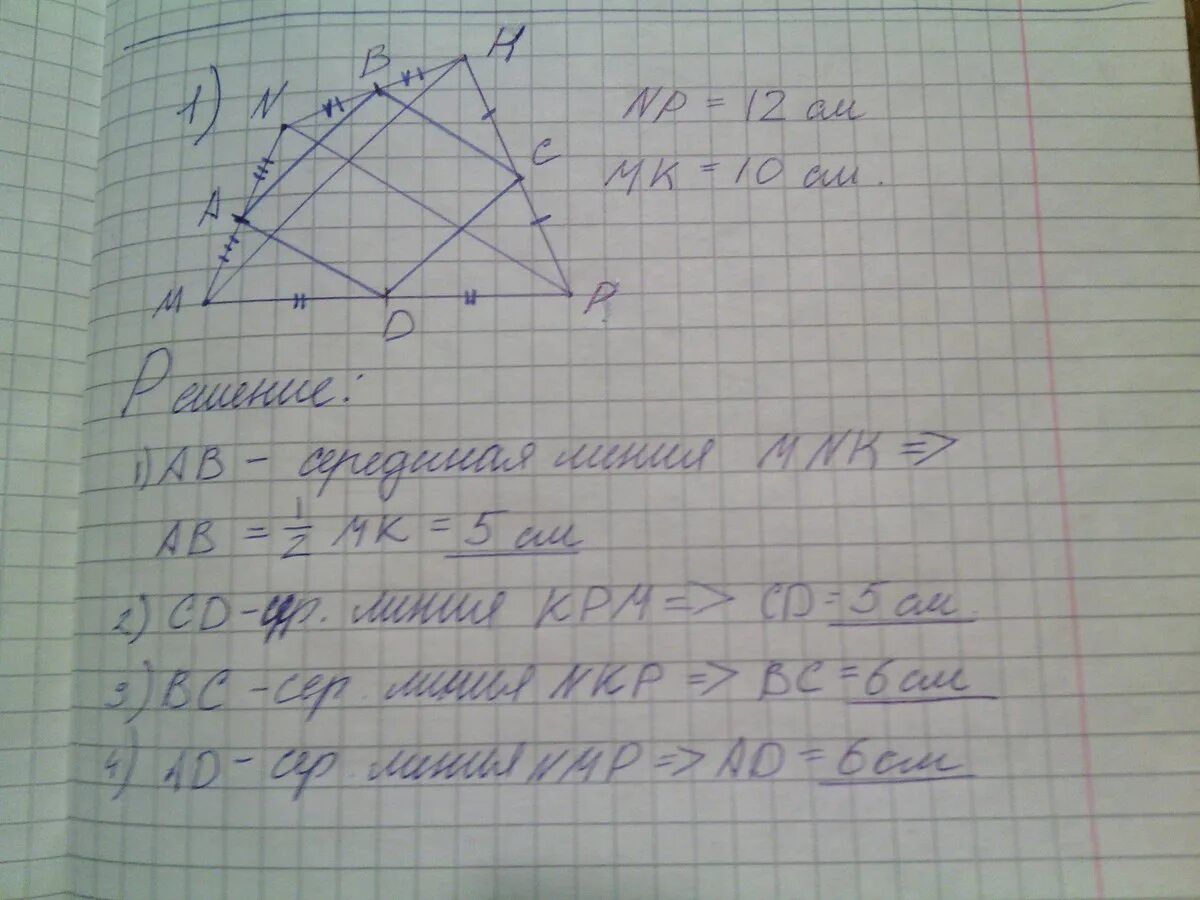 1)
N
B
К
C
A
M
D
P
NP = 12 см
MK = 10 см.
Решение:
1) AB – серединая линия MNK =>
AB = 1/2 MK = 5 см
2) CD – ср. линия KPM => CD = 5 см.
3) BC – сер. линия NKP => BC = 6 см
4) AD – ср. линия NMP => AD = 6 см